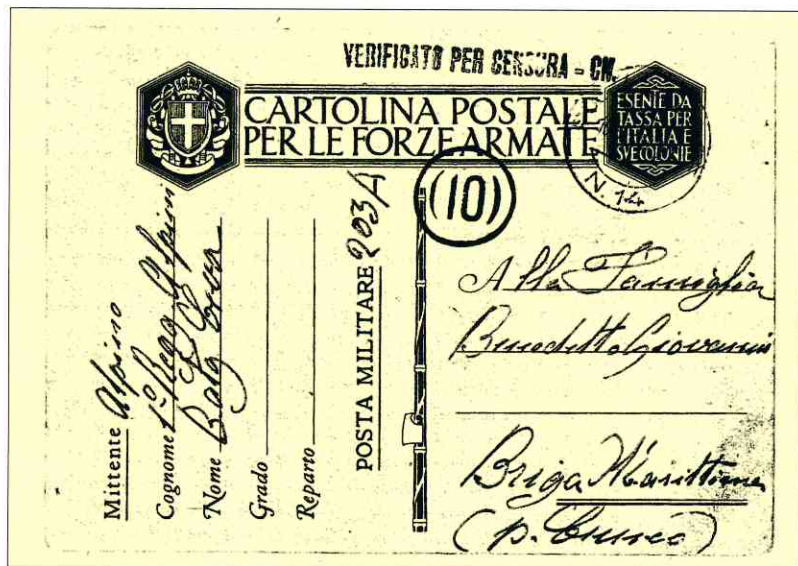 VERIFICATO PER CENSURA - CN.
CARTOLINA POSTALE
PER LE FORZE ARMATE
ESENTE DA
TASSA PER
L'ITALIA E
SVE COLONIE
N. 14
(10)
Mittente Alpino
Cognome 1º Regg Alpini
Nome Batg Ceva
Grado
Reparto
POSTA MILITARE 203A
Alla Famiglia
Benedetto Giovanni
Briga Marittima
(p. Cuneo)